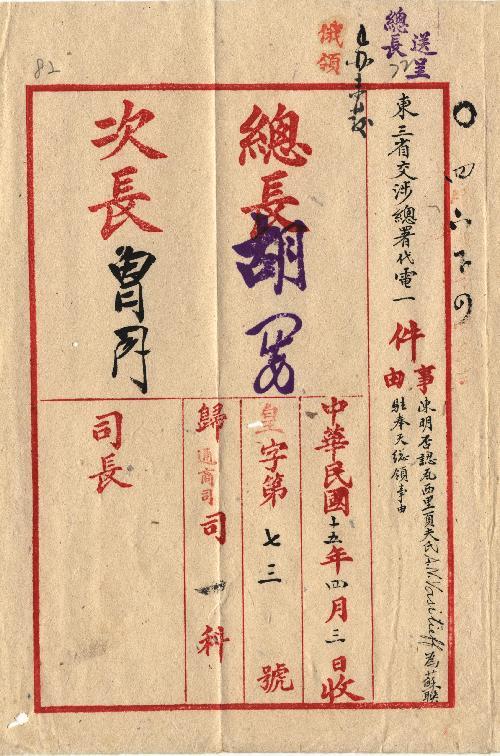 送呈
總長
俄領
東三省交涉總署代電一件
事由
陳明否認瓦西里頁夫氏A.N.Vasilieff為蘇聯
駐奉天總領事由
總長 胡
次長 曾
中華民國十五年四月三日收
皇字第七三號
歸通商司司一科
司長
82